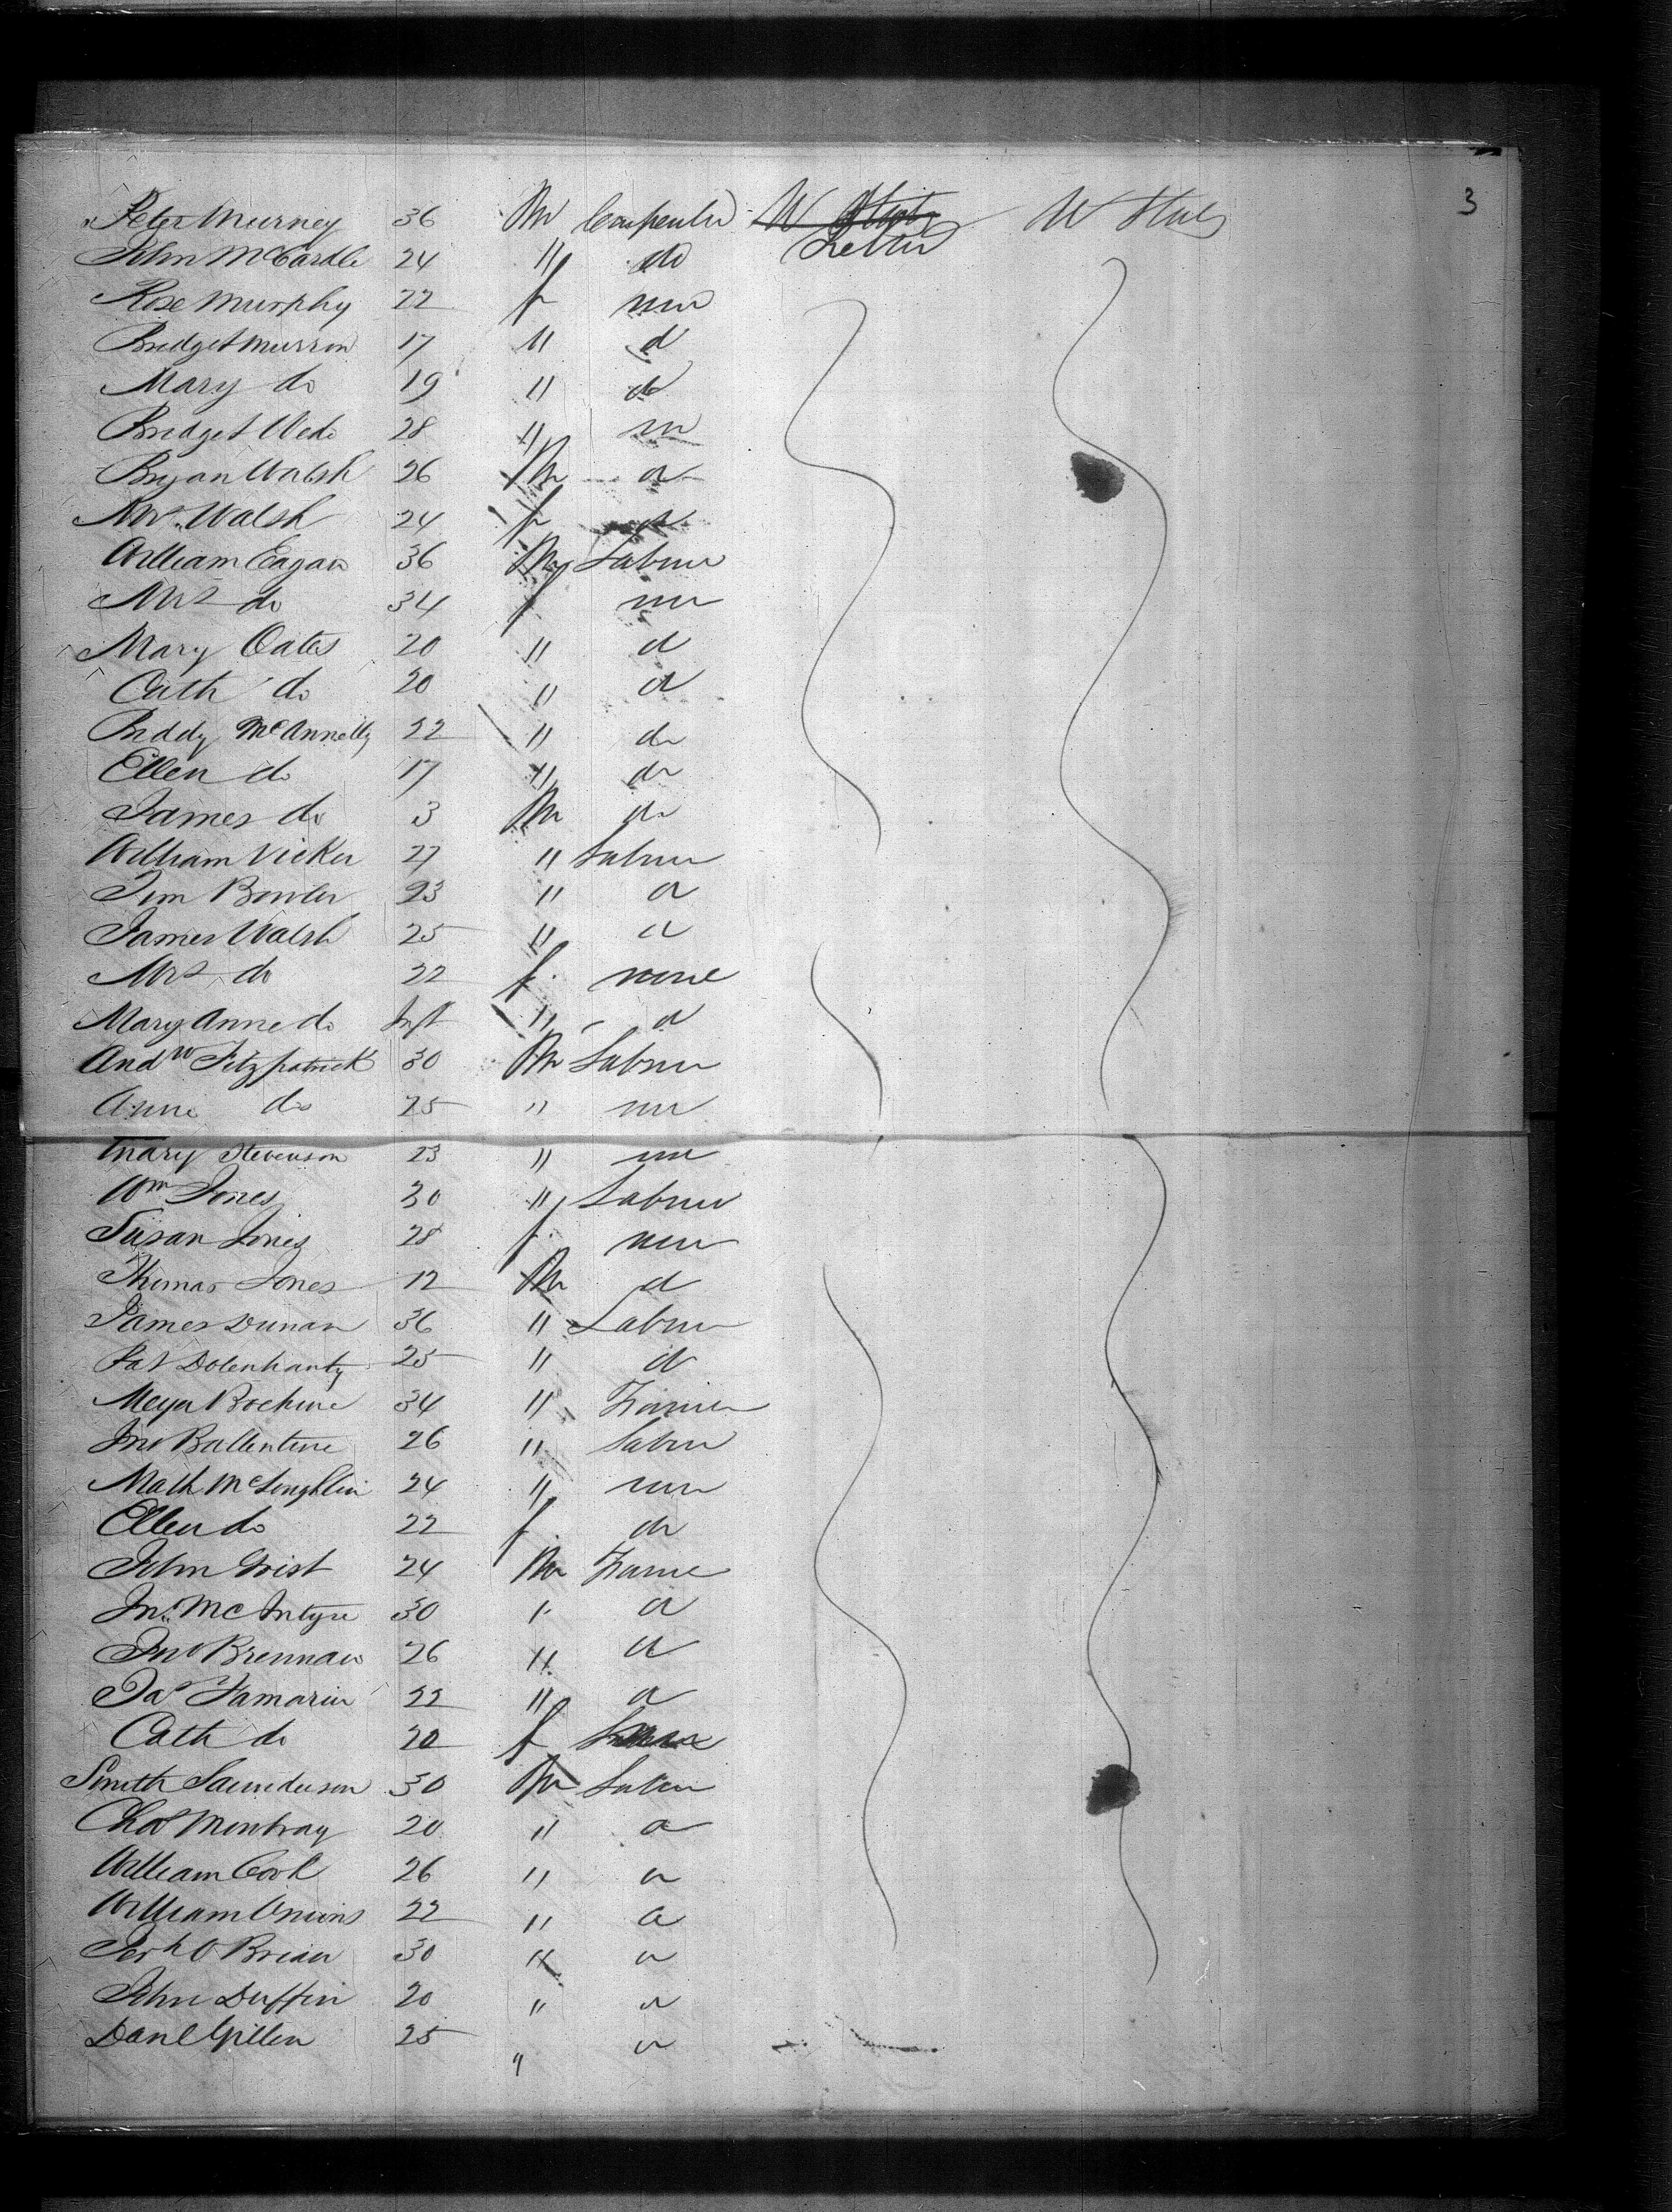 3
Peter Murney 36 M Carpenter W States W Stats
Ireland
John McCardle 24 " do
Rose Murphy 22 f non
Bridget Murron 17 " d
Mary do 19 " do
Bridget 28 " nn
Bryan Walsh 26 M d
Mrs. Walsh 24 f d
William Eagan 36 M Labour
Mrs do 34 f nn
Mary Oates 20 " d
Cath do 20 " d
Biddy McAnnelly 22 " do
Ellen do 17 " do
James do 3 M do
William Vicker 27 " Labour
Tim Bowler 23 " d
James Walsh 25 " d
Mrs do 22 f none
Mary Anne do Inft " d
Andw Fitzpatrick 30 M Labour
Anne do 25 " nn
Mary Stevenson 23 " nn
Wm Jones 30 " Labour
Susan Jones 28 f non
Thomas Jones 12 M d
James Dunan 36 " Labour
Pat Dolenhanty 25 " d
34 " Farmer
Jno Ballentine 26 " Labour
Math McLoughlin 24 " nn
Ellen do 22 f do
John Grist 24 M Farme
Jno. McIntyre 30 " d
Jno Brennan 26 " d
Jas Famarin 22 " d
Cath do 20 f
Smith Saunderson 30 M Labour
Chas Montray 20 " d
William Cook 26 " d
William Onions 22 " d
Josh O Brian 30 " d
John Duffin 20 " d
Danl Gillen 25 " d